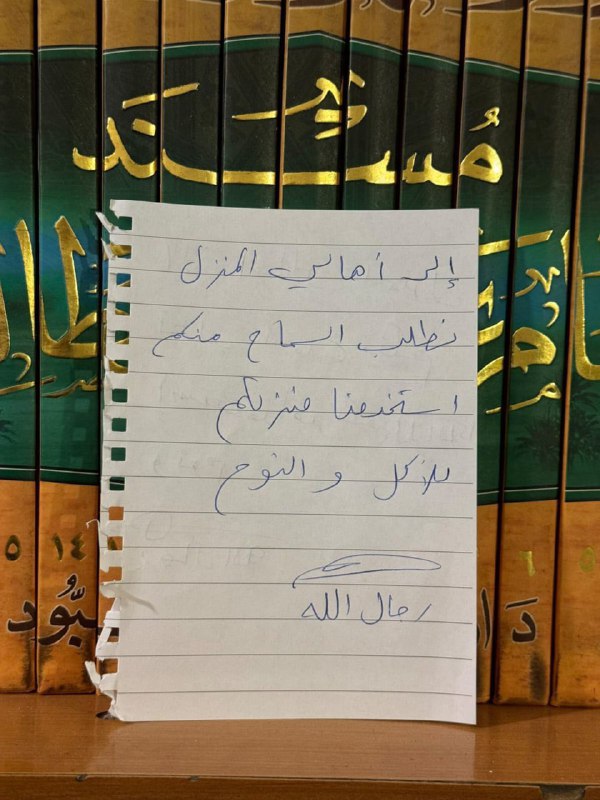 مسند
إلى أهالي المنزل
نطلب السماح منكم
استخدمنا منزلكم
للأكل و النوم
رجال الله